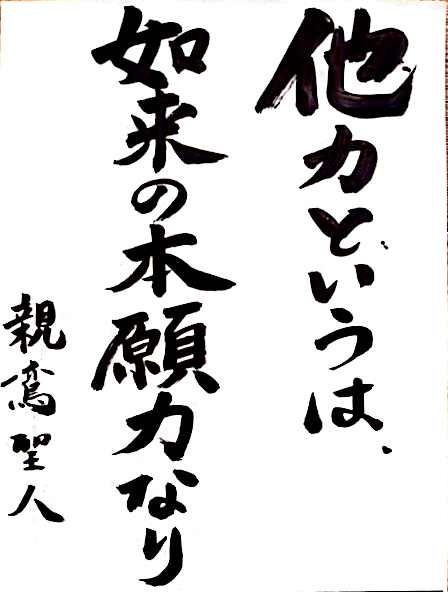 他力というは、
如来の本願力なり
親鸞聖人